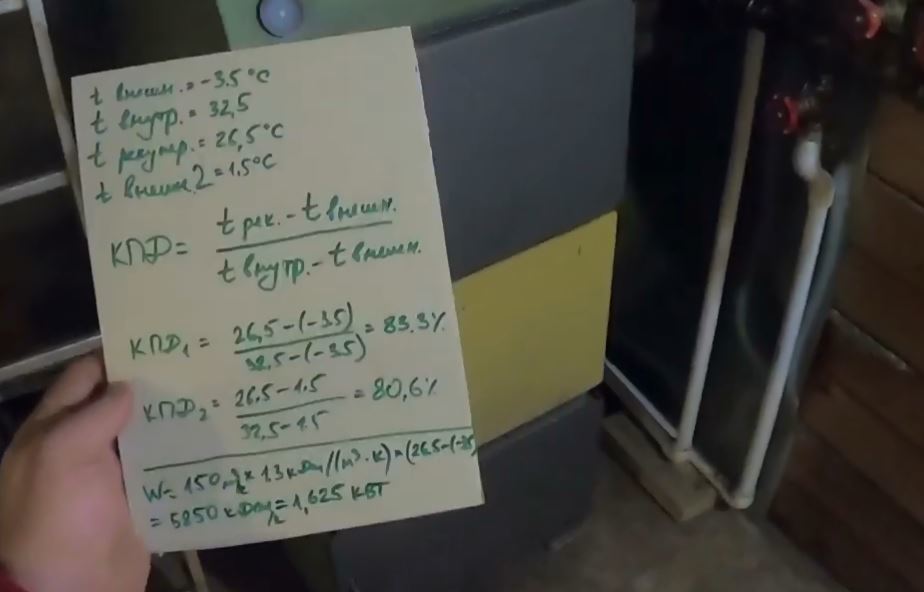 t внешн. = -3.5°C
t внутр. = 32,5
t рекупер. = 26,5°C
t внешн. 2 = 1.5°C
КПД = t рек. - t внешн. / t внутр. - t внешн.
КПД₁ = 26,5-(-3.5) / 32,5-(-3.5) = 83.3%
КПД₂ = 26.5-1.5 / 32,5-1.5 = 80,6%
W = 150 м³/ч × 1.3 кДж/(м³·К) × (26.5-(-3.5)
= 5850 кДж/ч = 1,625 кВт